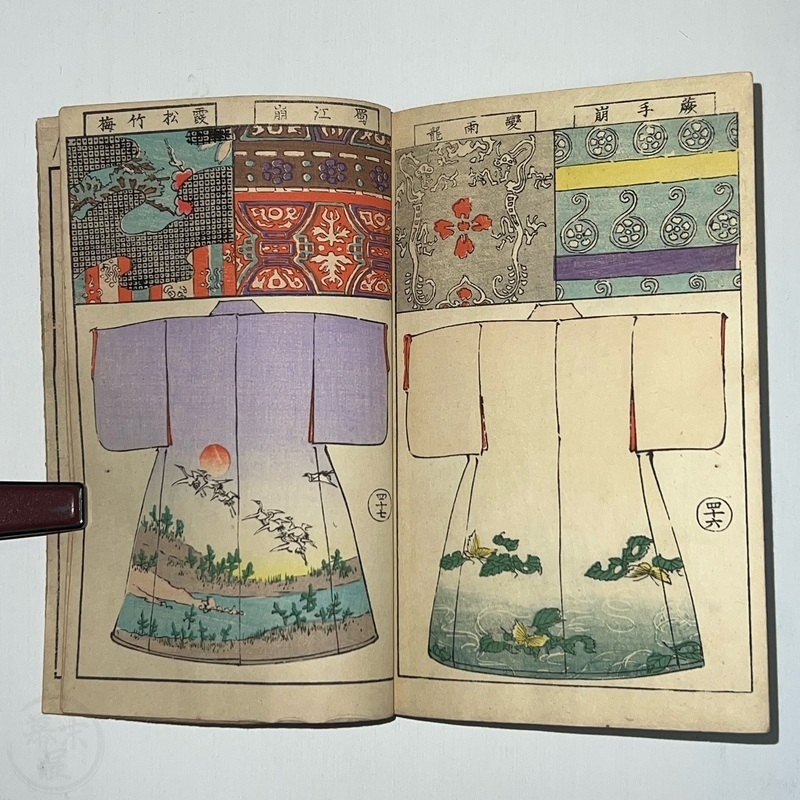 蕨手崩
變雨龍
四十六
蜀江崩
霞松竹梅
四十七